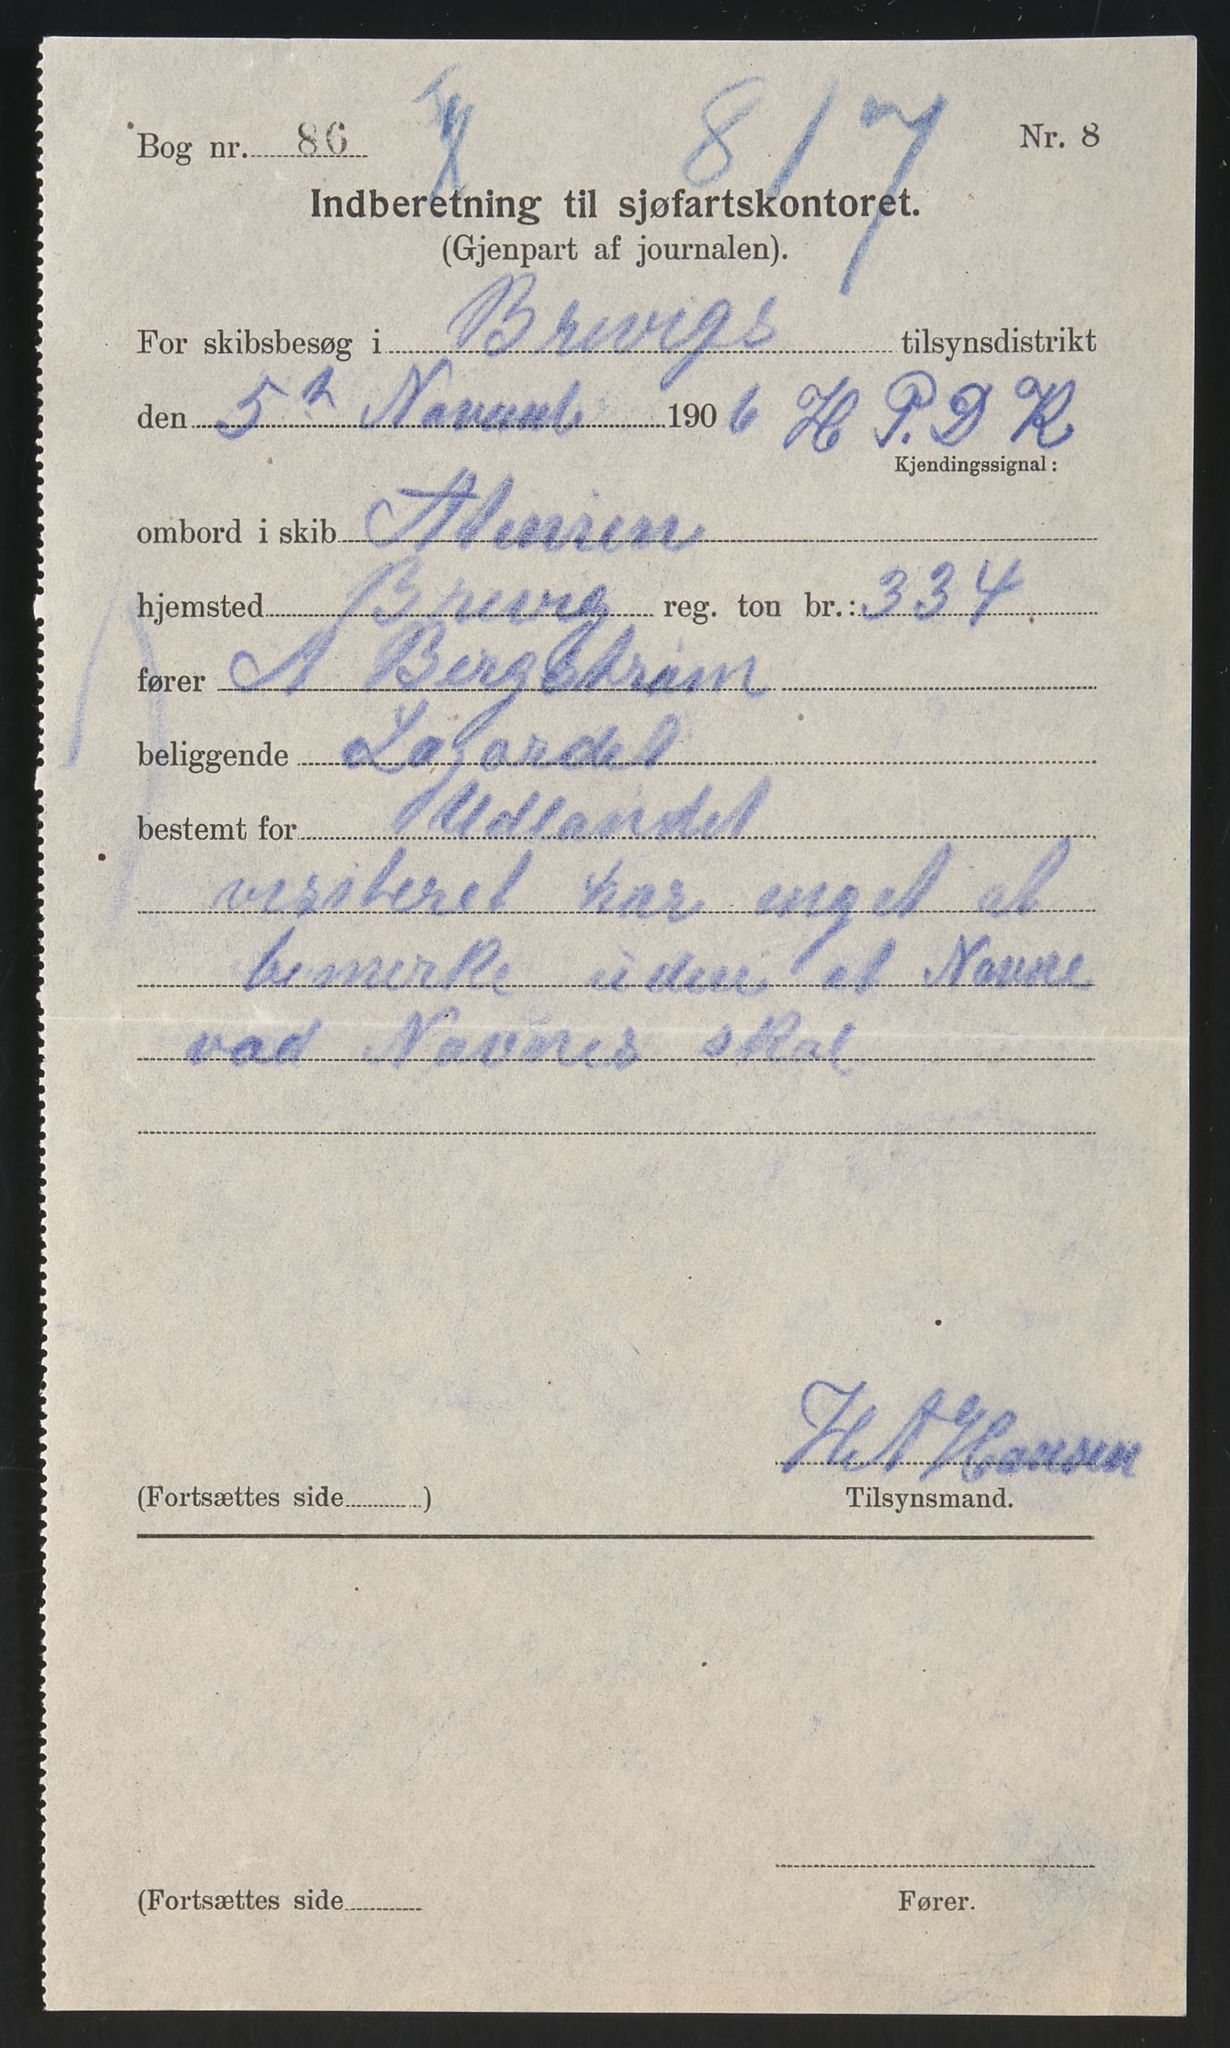 Bog nr. 86 8/7 Nr. 8
Indberetning til sjøfartskontoret.
(Gjenpart af journalen).
For skibsbesøg i Brevigs tilsynsdistrikt
den 5h Novemb 1906 H P. D K
Kjendingssignal:
ombord i skib
hjemsted Brevig reg. ton br.: 334
fører A Bergstrøm
beliggende
bestemt for Udlandet
visiteret har inget at
bemerke uden at Navne
vad Navnes skal
H A Hansen
(Fortsættes side ) Tilsynsmand.
(Fortsættes side Fører.